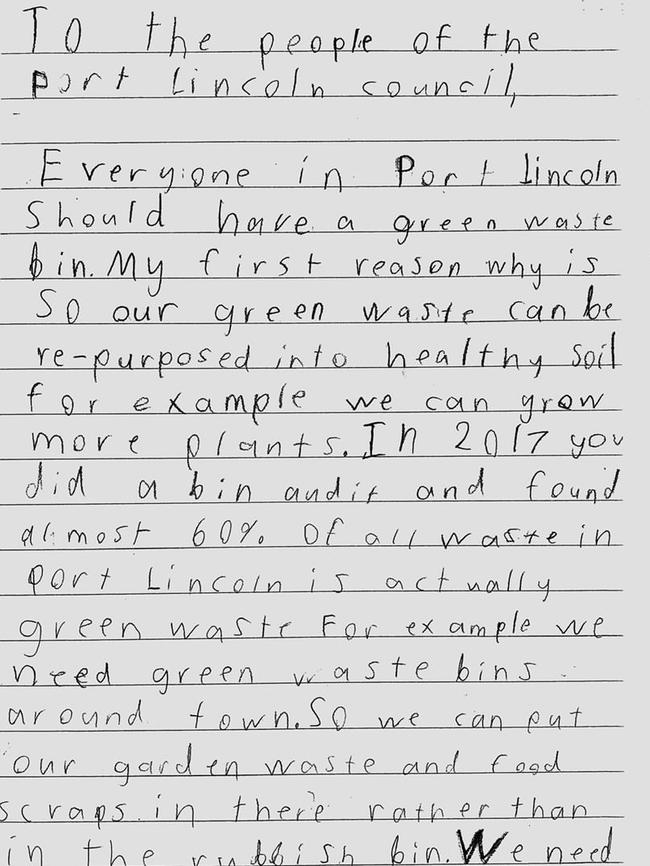 To the people of the
Port Lincoln council,
Everyone in Port lincoln
Should have a green waste
bin. My first reason why is
So our green waste can be
re-purposed into healthy soil
for example we can grow
more plants. In 2017 you
did a bin audit and found
almost 60% Of all waste in
Port Lincoln is actually
green waste For example we
need green waste bins
around town. So we can put
our garden waste and food
scraps in there rather than
in the rubbish bin. We need